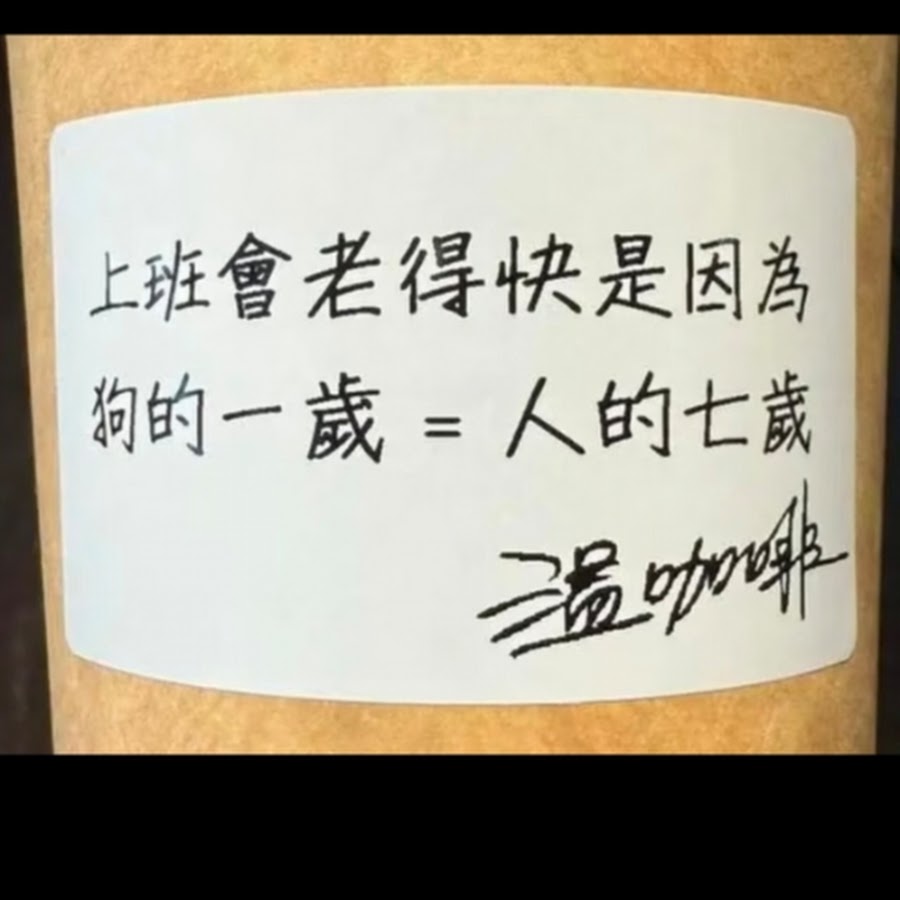 上班會老得快是因為
狗的一歲 = 人的七歲
溫咖啡